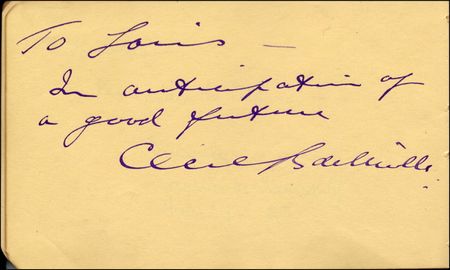 To Louis —
In anticipation of
a good future
Cecil B deMille